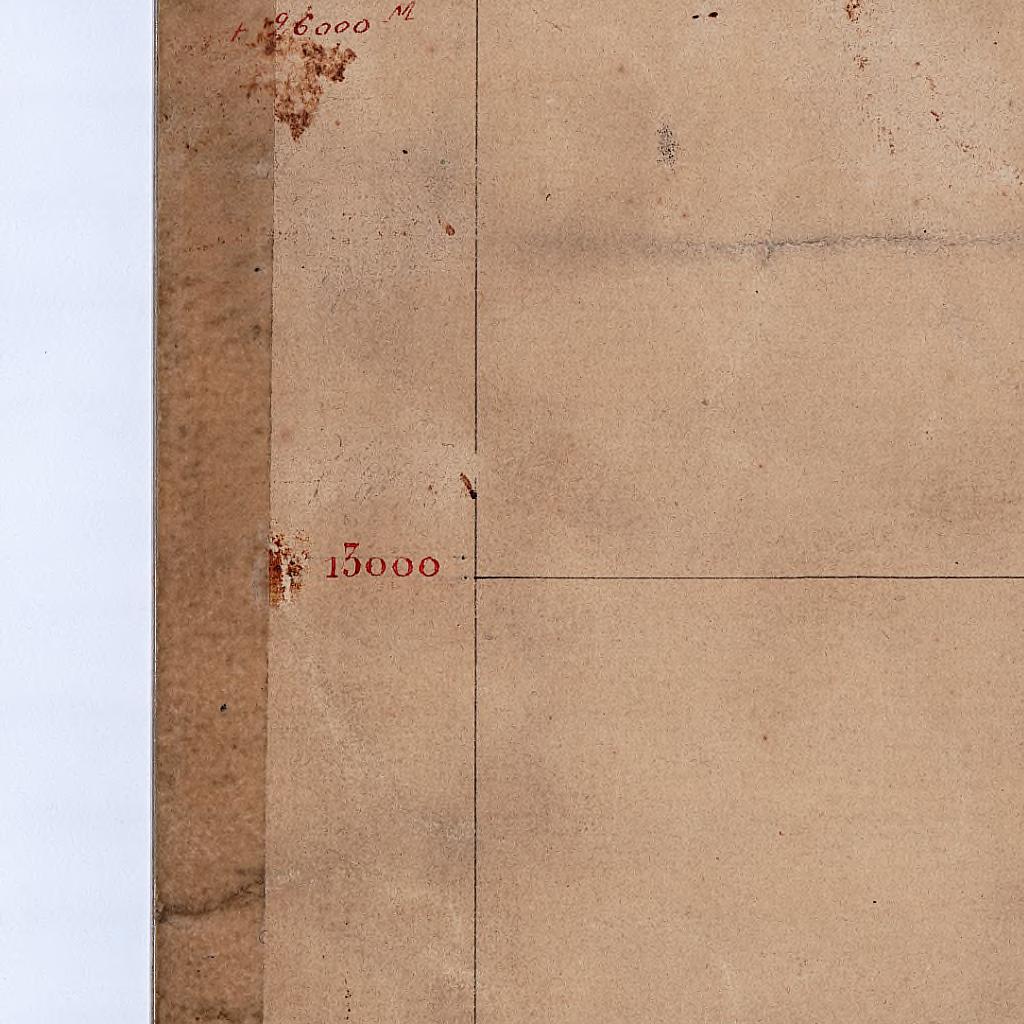 + 96000 M
13000